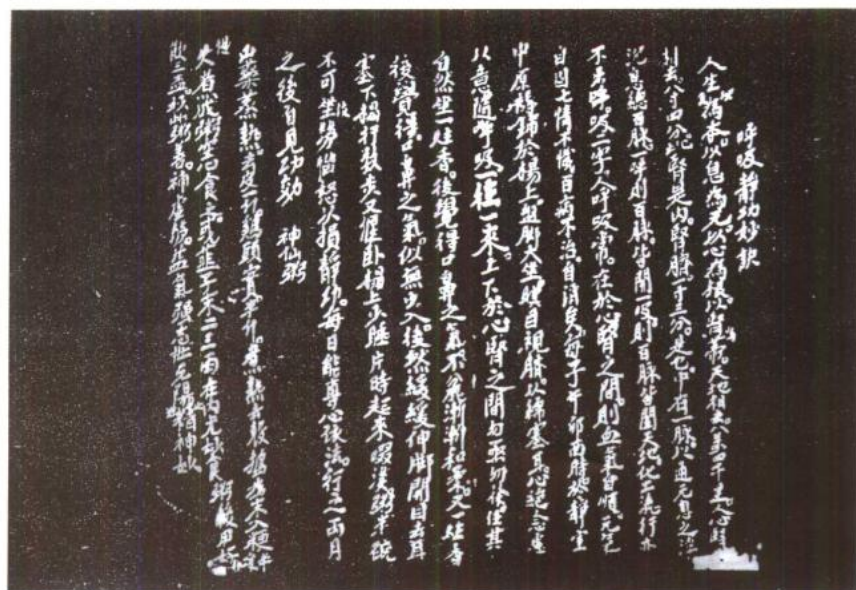 呼吸靜功妙訣
人生以氣為本。以息為元。以心為根。以腎為蒂。天地相去八萬四千里。人心腎
相去八寸四分。此腎是內腎。臍下一寸三分。是也。中有一脈。以通元息之浮
沉。息總百脈。一呼則百脈皆開。一吸則百脈皆闔。天地化工流行。亦
不出呼吸二字。人呼吸常在於心腎之間。則血氣自順。元氣
自固。七情不熾。百病不治。自消矣。每子午卯酉時。於靜室
中。厚褥鋪於榻上。盤脚大坐。瞑目視臍。以綿塞耳。心絕念慮
以意隨呼吸一往一來。上下於心腎之間。勿亟勿徐。任其
自然。坐一炷香。後覺得口鼻之氣不粗。漸漸和柔。又一炷香
後。覺得口鼻之氣。似無出入。後然緩緩伸脚開目。去耳
塞。下榻行數步。又偃卧榻上。少睡片時。起來啜淡粥半碗
不可作勞惱怒。以損靜功。每日能專心依法行之。兩月
之後自見功効　神仙粥
山藥蒸熟。去皮一斤。雞頭實半斤。煮熟去殼。搗為末。入粳米半升
慢火煮成粥。空心食之。或韭子末二三兩在內尤妙。食粥後用好
飲三盃。此粥善補虛勞。益氣強志。壯元陽。精神妙